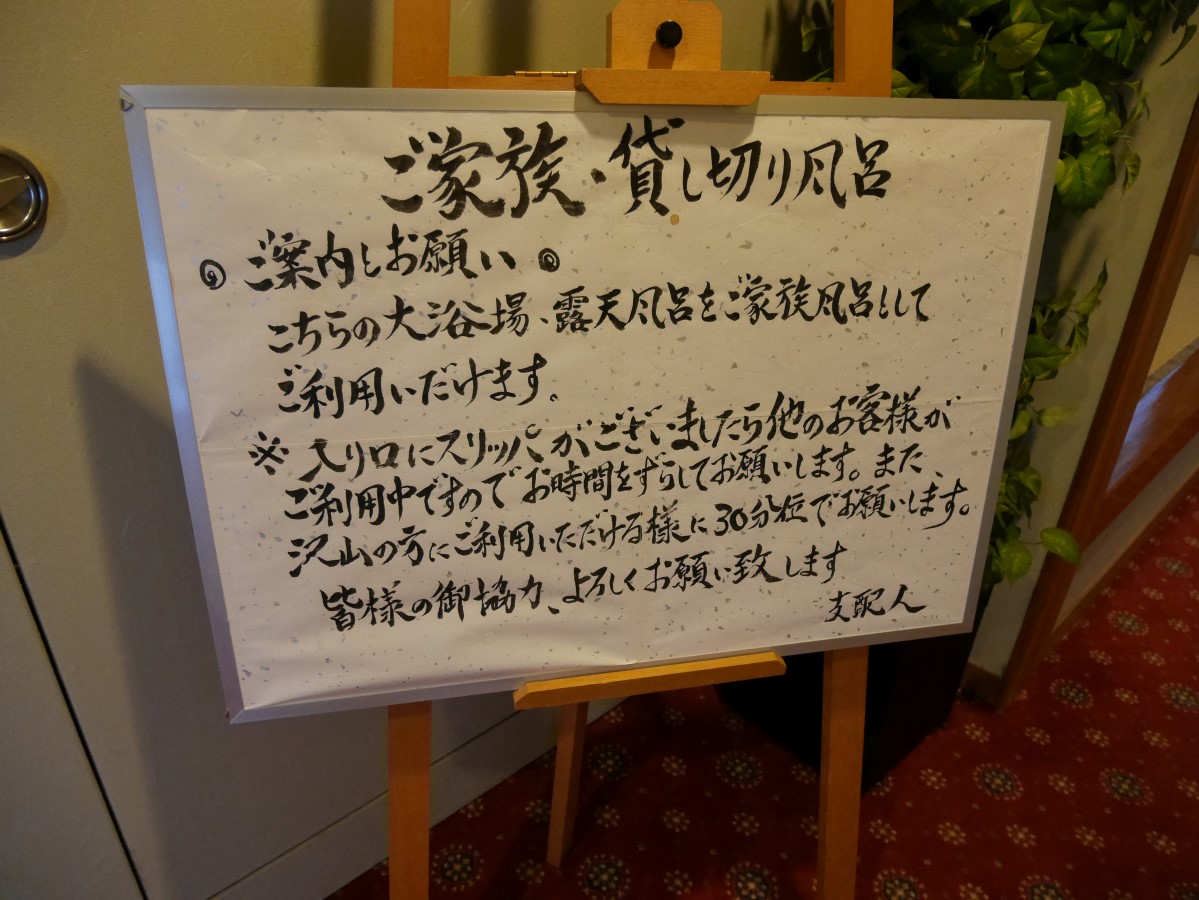 ご家族・貸し切り風呂
◎ご案内とお願い◎
こちらの大浴場、露天風呂をご家族風呂として
ご利用いただけます。
※入り口にスリッパがございましたら他のお客様が
ご利用中ですのでお時間をずらしてお願いします。また、
沢山の方にご利用いただける様に30分位でお願いします。
皆様の御協力、よろしくお願い致します
支配人